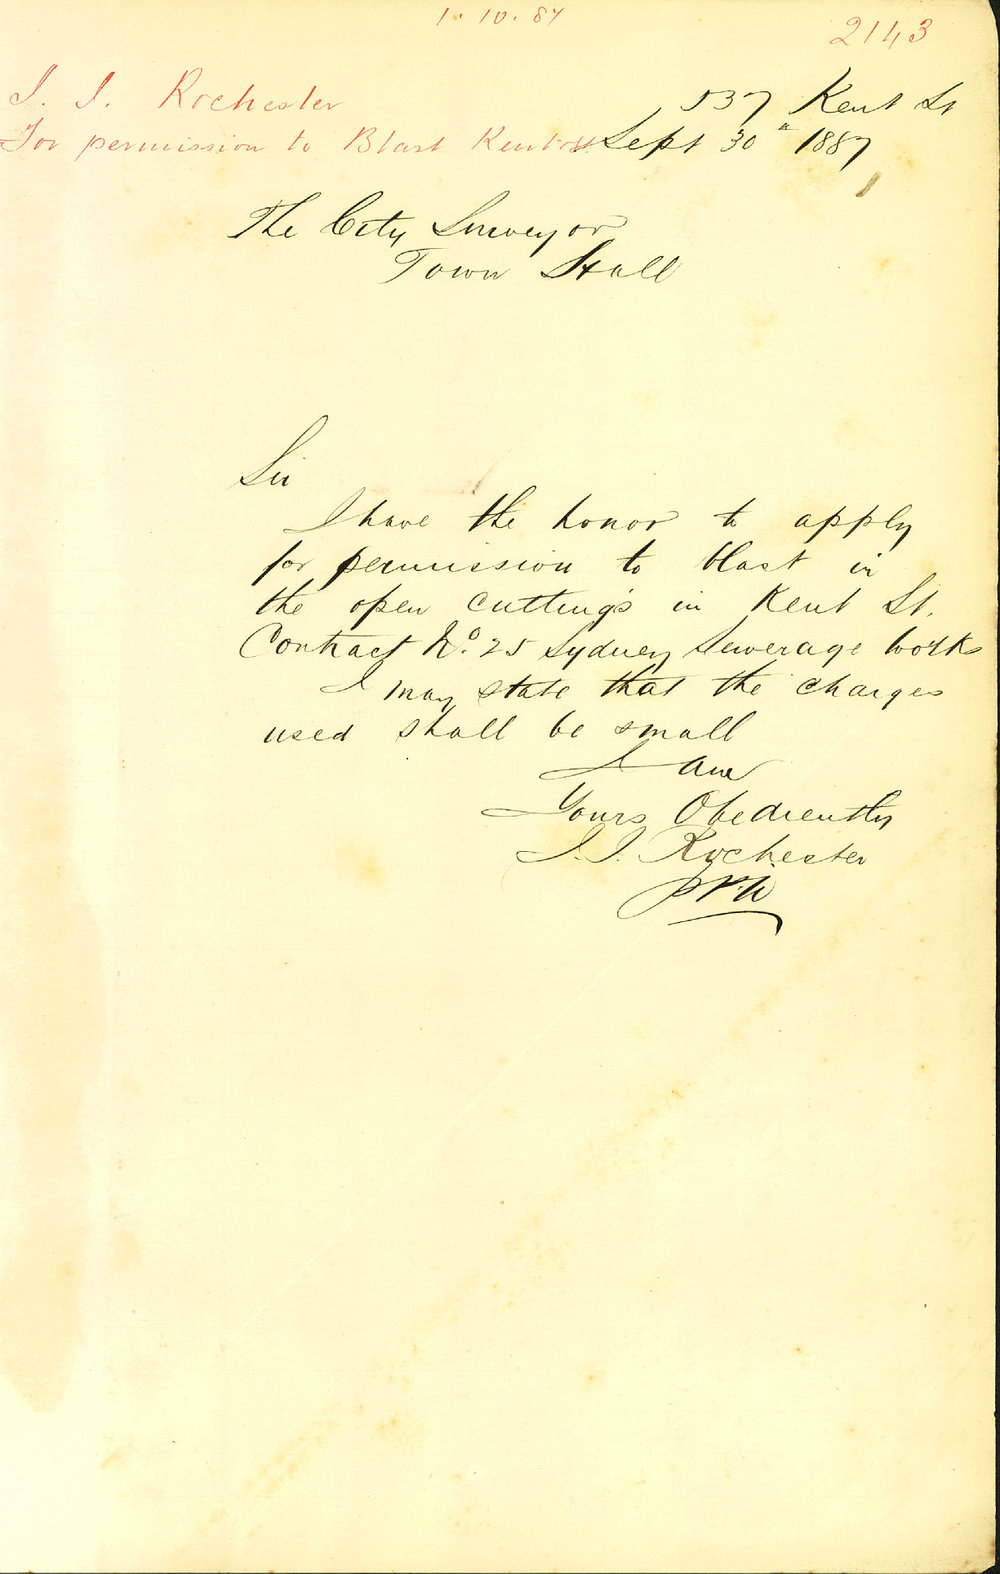 1.10.87
2143
J. J. Rochester
For permission to Blast Kent St
537 Kent St
Sept 30th 1887
The City Surveyor
Town Hall
Sir
I have the honor to apply
for permission to blast in
the open cutting's in Kent St.
Contract No. 25 Sydney Sewerage Works
I may state that the charges
used shall be small
I am
Yours Obediently
J. J. Rochester